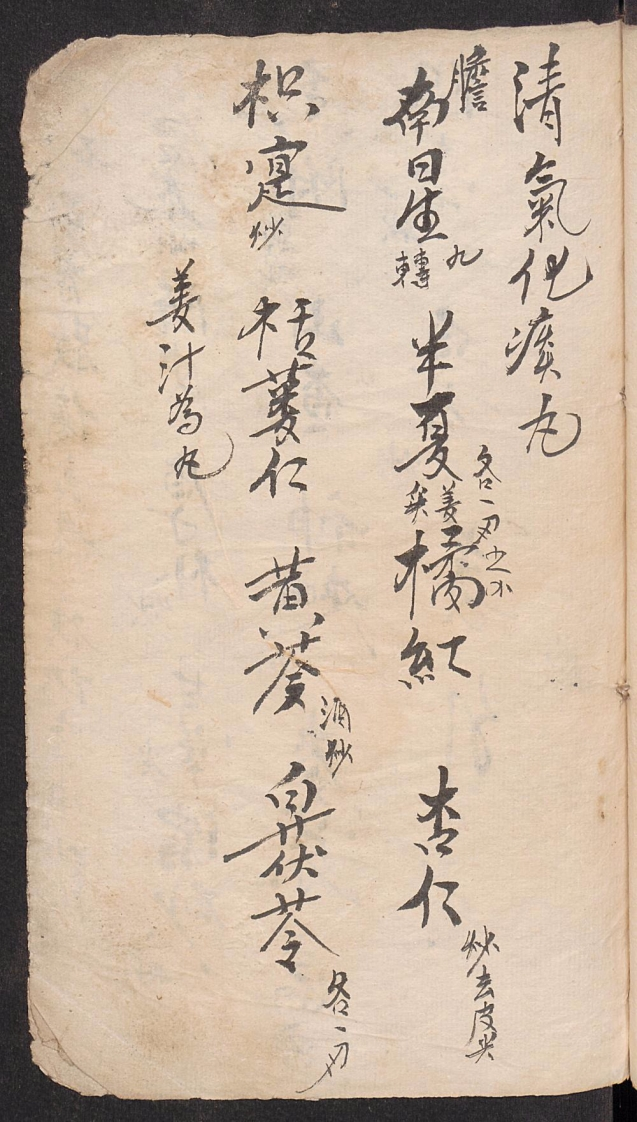 清氣化痰丸
膽南星 九轉 半夏 姜炙 各一刃 橘紅 杏仁 炒去皮尖
枳寔 炒 栝蔞仁 黄芩 酒炒 白茯苓 各一刃
姜汁為丸